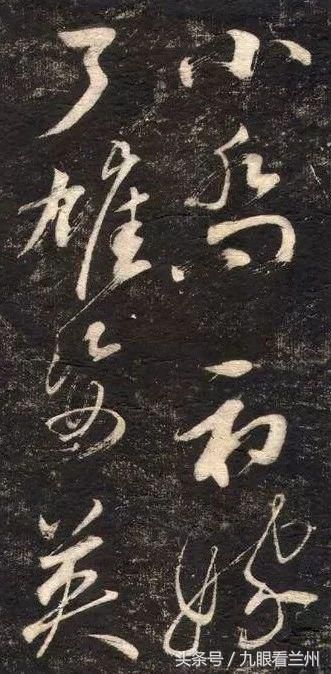 小喬初嫁
了雄姿英
头条号 / 九眼看兰州